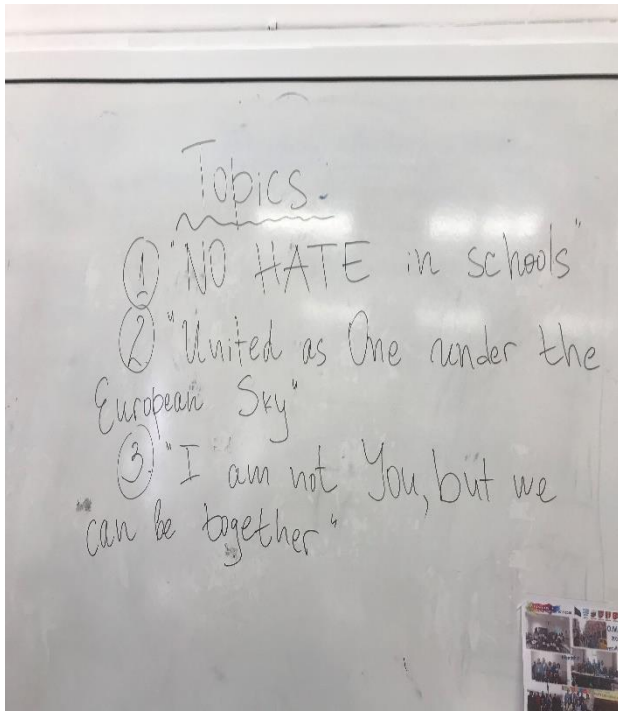 Topics.
① "NO HATE in schools"
② "United as One under the
European Sky"
③ "I am not You, but we
can be together"